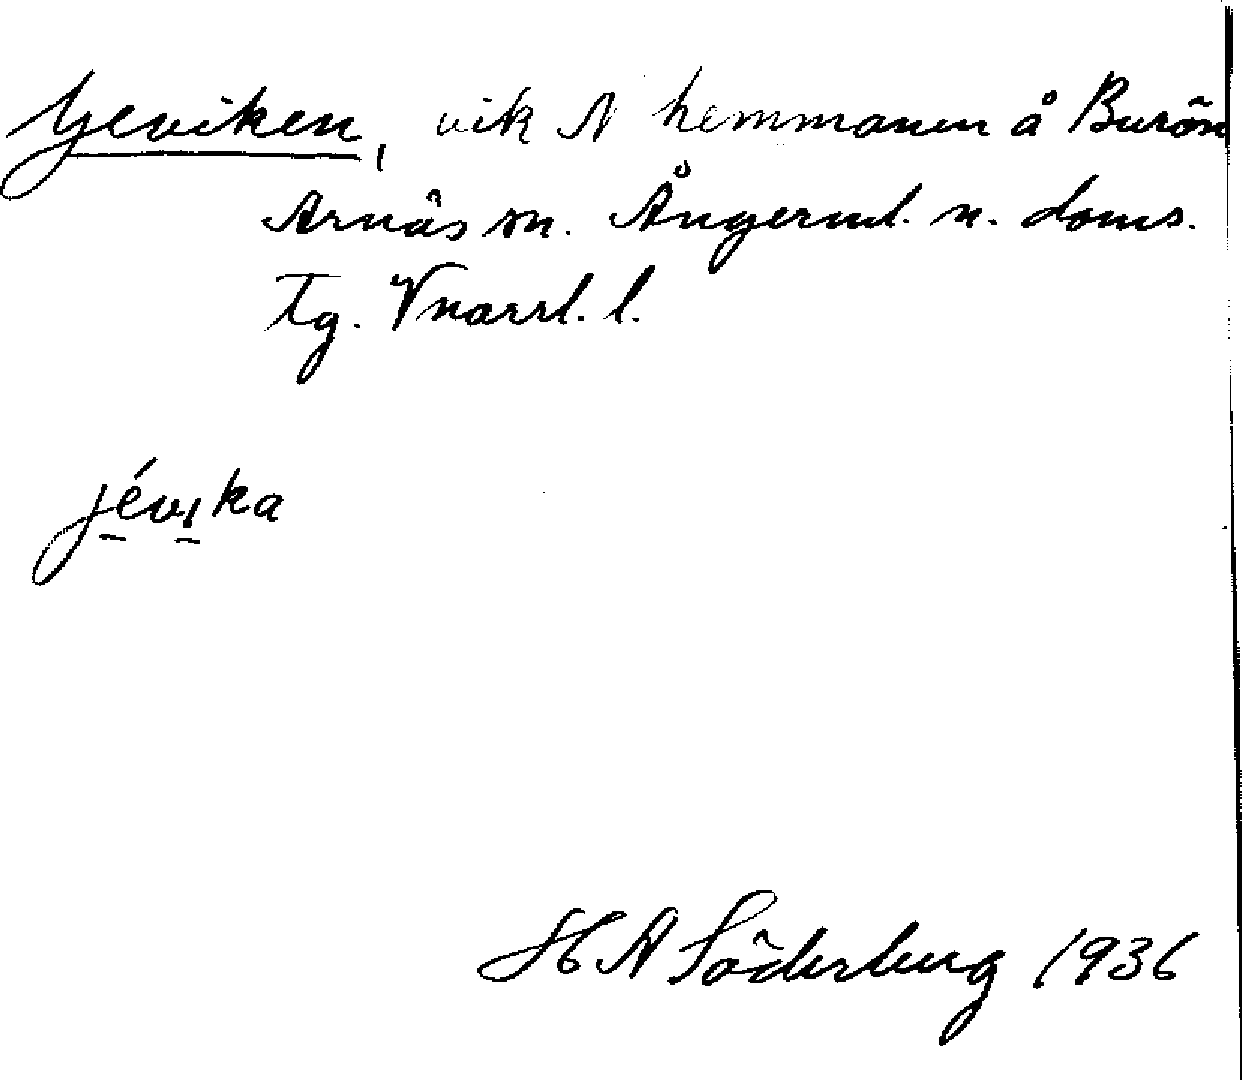 Yeviken, vik N hemmanen å Burön
Arnäs sn. Ångerml. n. doms.
Tg. Vnorrl. l.
jévıka
H A Söderberg 1936